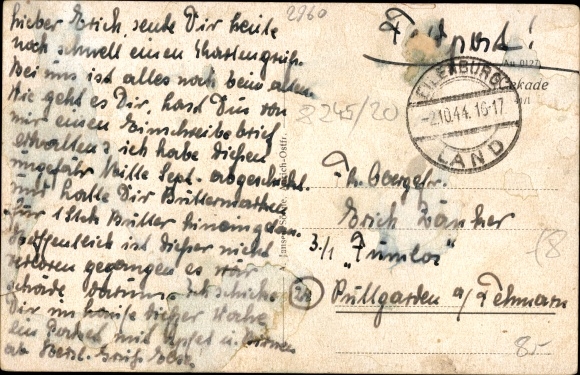 Lieber Erich, sende Dir heute
noch schnell einen Kartengruß.
Bei uns ist alles noch beim alten.
Wie geht es Dir, hast Du von
mir einen Einschreibebrief
erhalten? ich habe diesen
ungefähr Mitte Sept. abgeschickt.
und hatte Dir Buttermarken
für 1 Stck Butter hineingetan.
Hoffentlich ist dieser nicht
verloren gegangen es wär
schade darum. Ich schicke
Dir im Laufe dieser Woche
ein Packet mit Äpfel u. Birnen
ab Herzl. Grüße
2860
Feldpost!
8245/20
EILENBURG
-2.10.44.16-17
LAND
Erich
3./1
Puttgarden a/Fehmarn
24
18
85.-